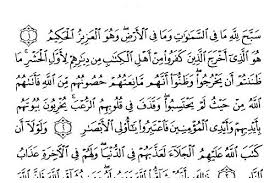 سَبَّحَ لِلَّهِ مَا فِي السَّمَٰوَٰتِ وَمَا فِي الْأَرْضِ وَهُوَ الْعَزِيزُ الْحَكِيمُ ١
هُوَ الَّذِي أَخْرَجَ الَّذِينَ كَفَرُوا مِنْ أَهْلِ الْكِتَٰبِ مِن دِيَٰرِهِمْ لِأَوَّلِ الْحَشْرِ مَا
ظَنَنتُمْ أَن يَخْرُجُوا وَظَنُّوا أَنَّهُم مَّانِعَتُهُمْ حُصُونُهُم مِّنَ اللَّهِ فَأَتَىٰهُمُ
اللَّهُ مِنْ حَيْثُ لَمْ يَحْتَسِبُوا وَقَذَفَ فِي قُلُوبِهِمُ الرُّعْبَ يُخْرِبُونَ بُيُوتَهُم
بِأَيْدِيهِمْ وَأَيْدِي الْمُؤْمِنِينَ فَاعْتَبِرُوا يَٰأُولِي الْأَبْصَٰرِ ٢ وَلَوْلَا أَن
كَتَبَ اللَّهُ عَلَيْهِمُ الْجَلَاءَ لَعَذَّبَهُمْ فِي الدُّنْيَا وَلَهُمْ فِي الْآخِرَةِ عَذَابُ